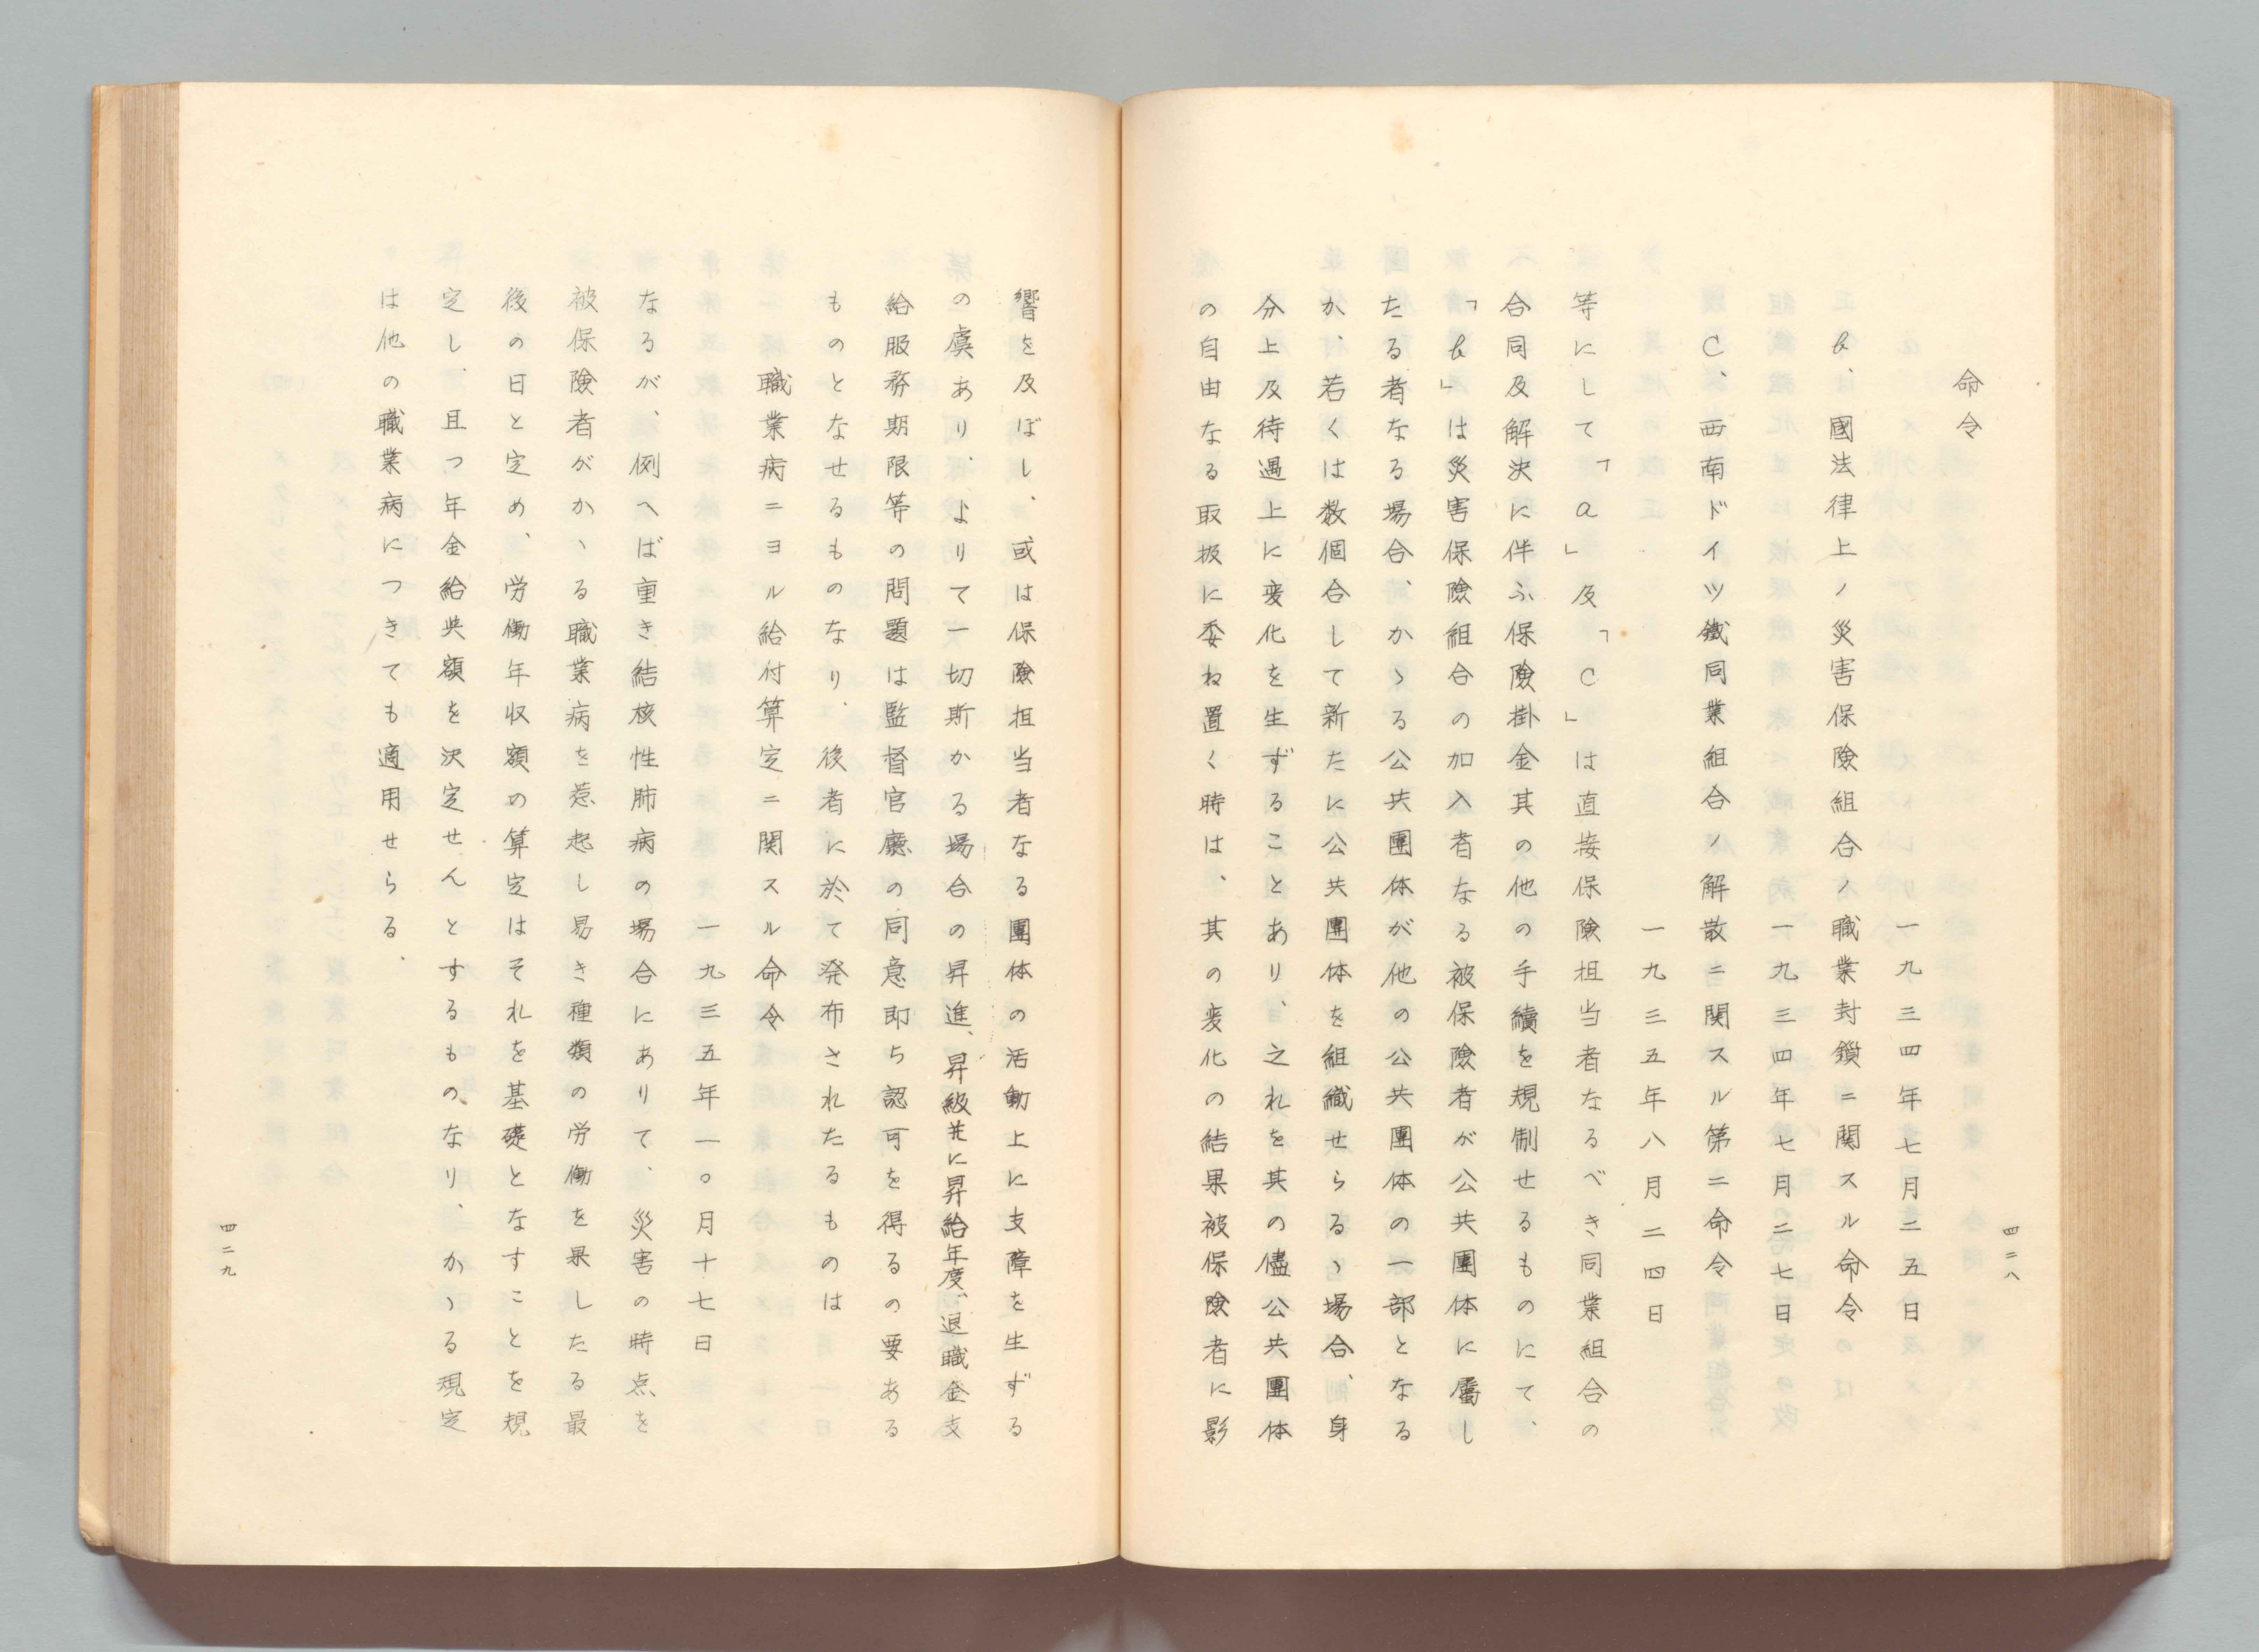 四二八
命令
一九三四年七月二五日
b、國法律上ノ災害保險組合ノ職業封鎖ニ関スル命令
一九三四年七月二七日
C、西南ドイツ鐵同業組合ノ解散ニ関スル第二命令
一九三五年八月二四日
等にして「a」及「C」は直接保険担当者なるべき同業組合の
合同及解決に伴ふ保険掛金其の他の手續を規制せるものにて、
「b」は災害保險組合の加入者なる被保險者が公共團体に屬し
たる者なる場合、かゝる公共團体が他の公共團体の一部となる
か、若くは数個合して新たに公共團体を組織せらるゝ場合、身
分上及待遇上に変化を生ずることあり、之れを其の儘公共團体
の自由なる取扱に委ね置く時は、其の変化の結果被保険者に影
響を及ぼし、或は保険担当者なる團体の活動上に支障を生ずる
の虞あり、よりて一切斯かる場合の昇進、昇級共に昇給年度、退職金支
給服務期限等の問題は監督官廳の同意即ち認可を得るの要ある
ものとなせるものなり、後者に於て発布されたるものは
職業病ニヨル給付算定ニ関スル命令
一九三五年一〇月十七日
なるが、例へば重き結核性肺病の場合にありて、災害の時点を
被保険者がかゝる職業病を惹起し易き種類の労働を果したる最
後の日と定め、労働年収額の算定はそれを基礎となすことを規
定し、且つ年金給與額を決定せんとするものなり、かゝる規定
は他の職業病につきても適用せらる、
四二九